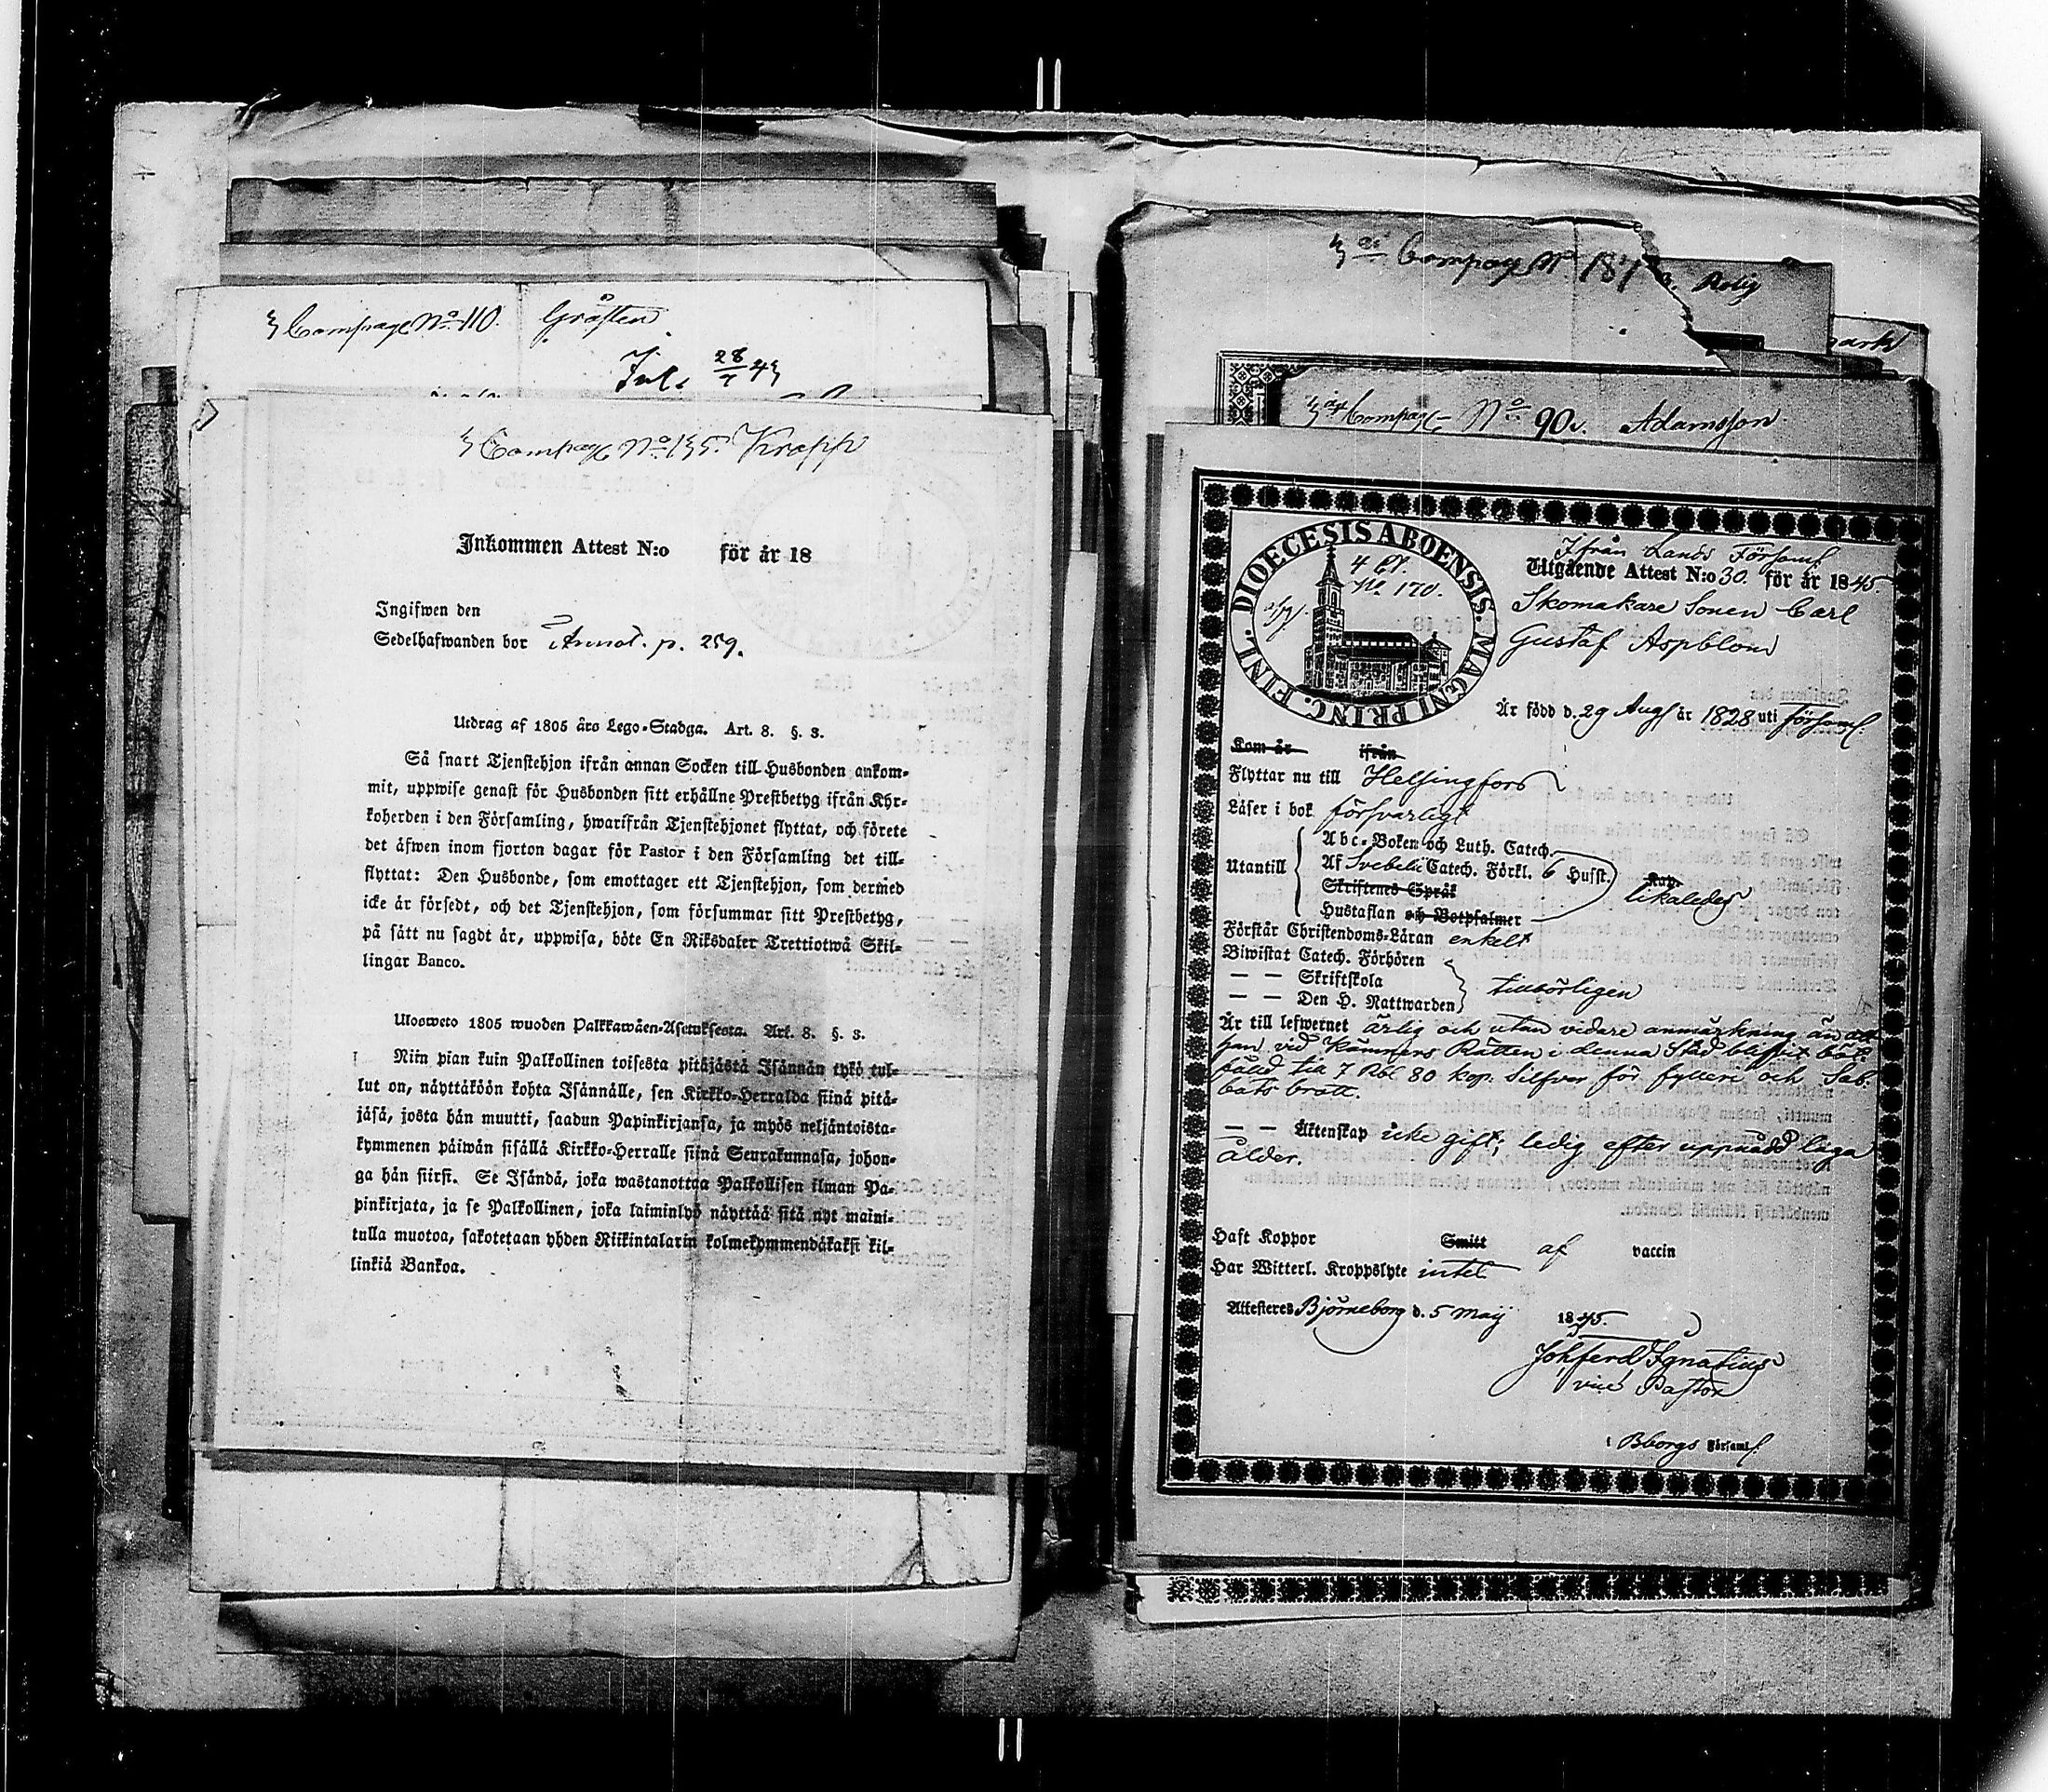 3 Compagn No 110. Gråsten
Inl. 28/7 43
3 Compagn No 135. Kropp
Inkommen Attest N:o för år 18
Ingifwen den
Sedelhafwanden bor Annot. p. 259.
Utdrag af 1805 års Lego-Stadga. Art. 8. §. 3.
Så snart Tjenstehjon ifrån annan Socken till Husbonden ankom-
mit, uppwise genast för Husbonden sitt erhållne Prestbetyg ifrån Kyr-
koherden i den Församling, hwarifrån Tjenstehjonet flyttat, och förete
det äfwen inom fjorton dagar för Pastor i den Församling det till-
flyttat: Den Husbonde, som emottager ett Tjenstehjon, som dermed
icke är försedt, och det Tjenstehjon, som försummar sitt Prestbetyg,
på sätt nu sagdt är, uppwisa, böte En Riksdaler Trettiotwå Skil-
lingar Banco.
Ulosweto 1805 wuoden Palkkawäen-Asetuksesta. Art. 8. §. 3.
Niin pian kuin Palkollinen toisesta pitäjästä Isännän tykö tul-
lut on, näyttäköön kohta Isännälle, sen Kirkko-Herralda siinä pitä-
jäsä, josta hän muutti, saadun Papinkirjansa, ja myös neljäntoista-
kymmenen päiwän sisällä Kirkko-Herralle siinä Seurakunnasa, johon-
ga hän siirsi. Se Isändä, joka wastanottaa Palkollisen ilman Pa-
pinkirjata, ja se Palkollinen, joka laiminlyö näyttää sitä nyt maini-
tulla muotoa, sakotetaan yhden Riikintalarin kolmekymmendäkaksi kil-
linkiä Bankoa.
Compagn No 187 Rolig
Compagn No 90. Adamsson
DIOECESIS ABOENSIS. MAGNI PRINC. FINL.
4 Cl.
No. 170.
Ifrån Lands Församl.
Utgående Attest N:o 30. för år 1845.
Skomakare Sonen Carl
Gustaf Aspblom
Är född d. 29 Aug år 1828 uti församl:
Kom år ifrån
Flyttar nu till Helsingfors
Läser i bok försvarligt
Utantill
Abc-Boken och Luth. Catech.
Af Svebelii Catech. Förkl. 6 Hufst.
Skriftenes Språk
Hustaflan och Botpsalmer
likaledes
Förstår Christendoms-Läran enkelt
Biwistat Catech. Förhören
— — Skriftskola
— — Den H. Nattwarden
tillbörligen
Är till lefwernet ärlig och utan vidare anmärkning än att
han vid Kämners Rätten i denna Stad blifvit böt
fälld till 7 Rbl 80 kop: Silfver för fylleri och Sab-
bats brott.
— — Äktenskap icke gift; ledig efter uppnådd laga
ålder.
Haft Koppor Smitt af vaccin
Har Witterl. Kroppslyte intet
Attesteres Björneborg d. 5 Maij 1845.
Joh ferd Ignatius
vice Pastor
i Bborgs Församl.